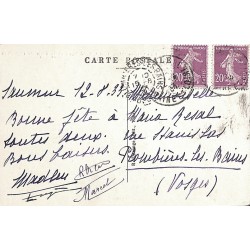 CARTE POSTALE
Saumur 12-8-39
Bonne fête à
toutes deux.
Bons baisers.
Madeleine
Marcel
Mademoiselle
Maria Resal
rue Stanislas
Plombières-les-Bains
(Vosges)
20
20